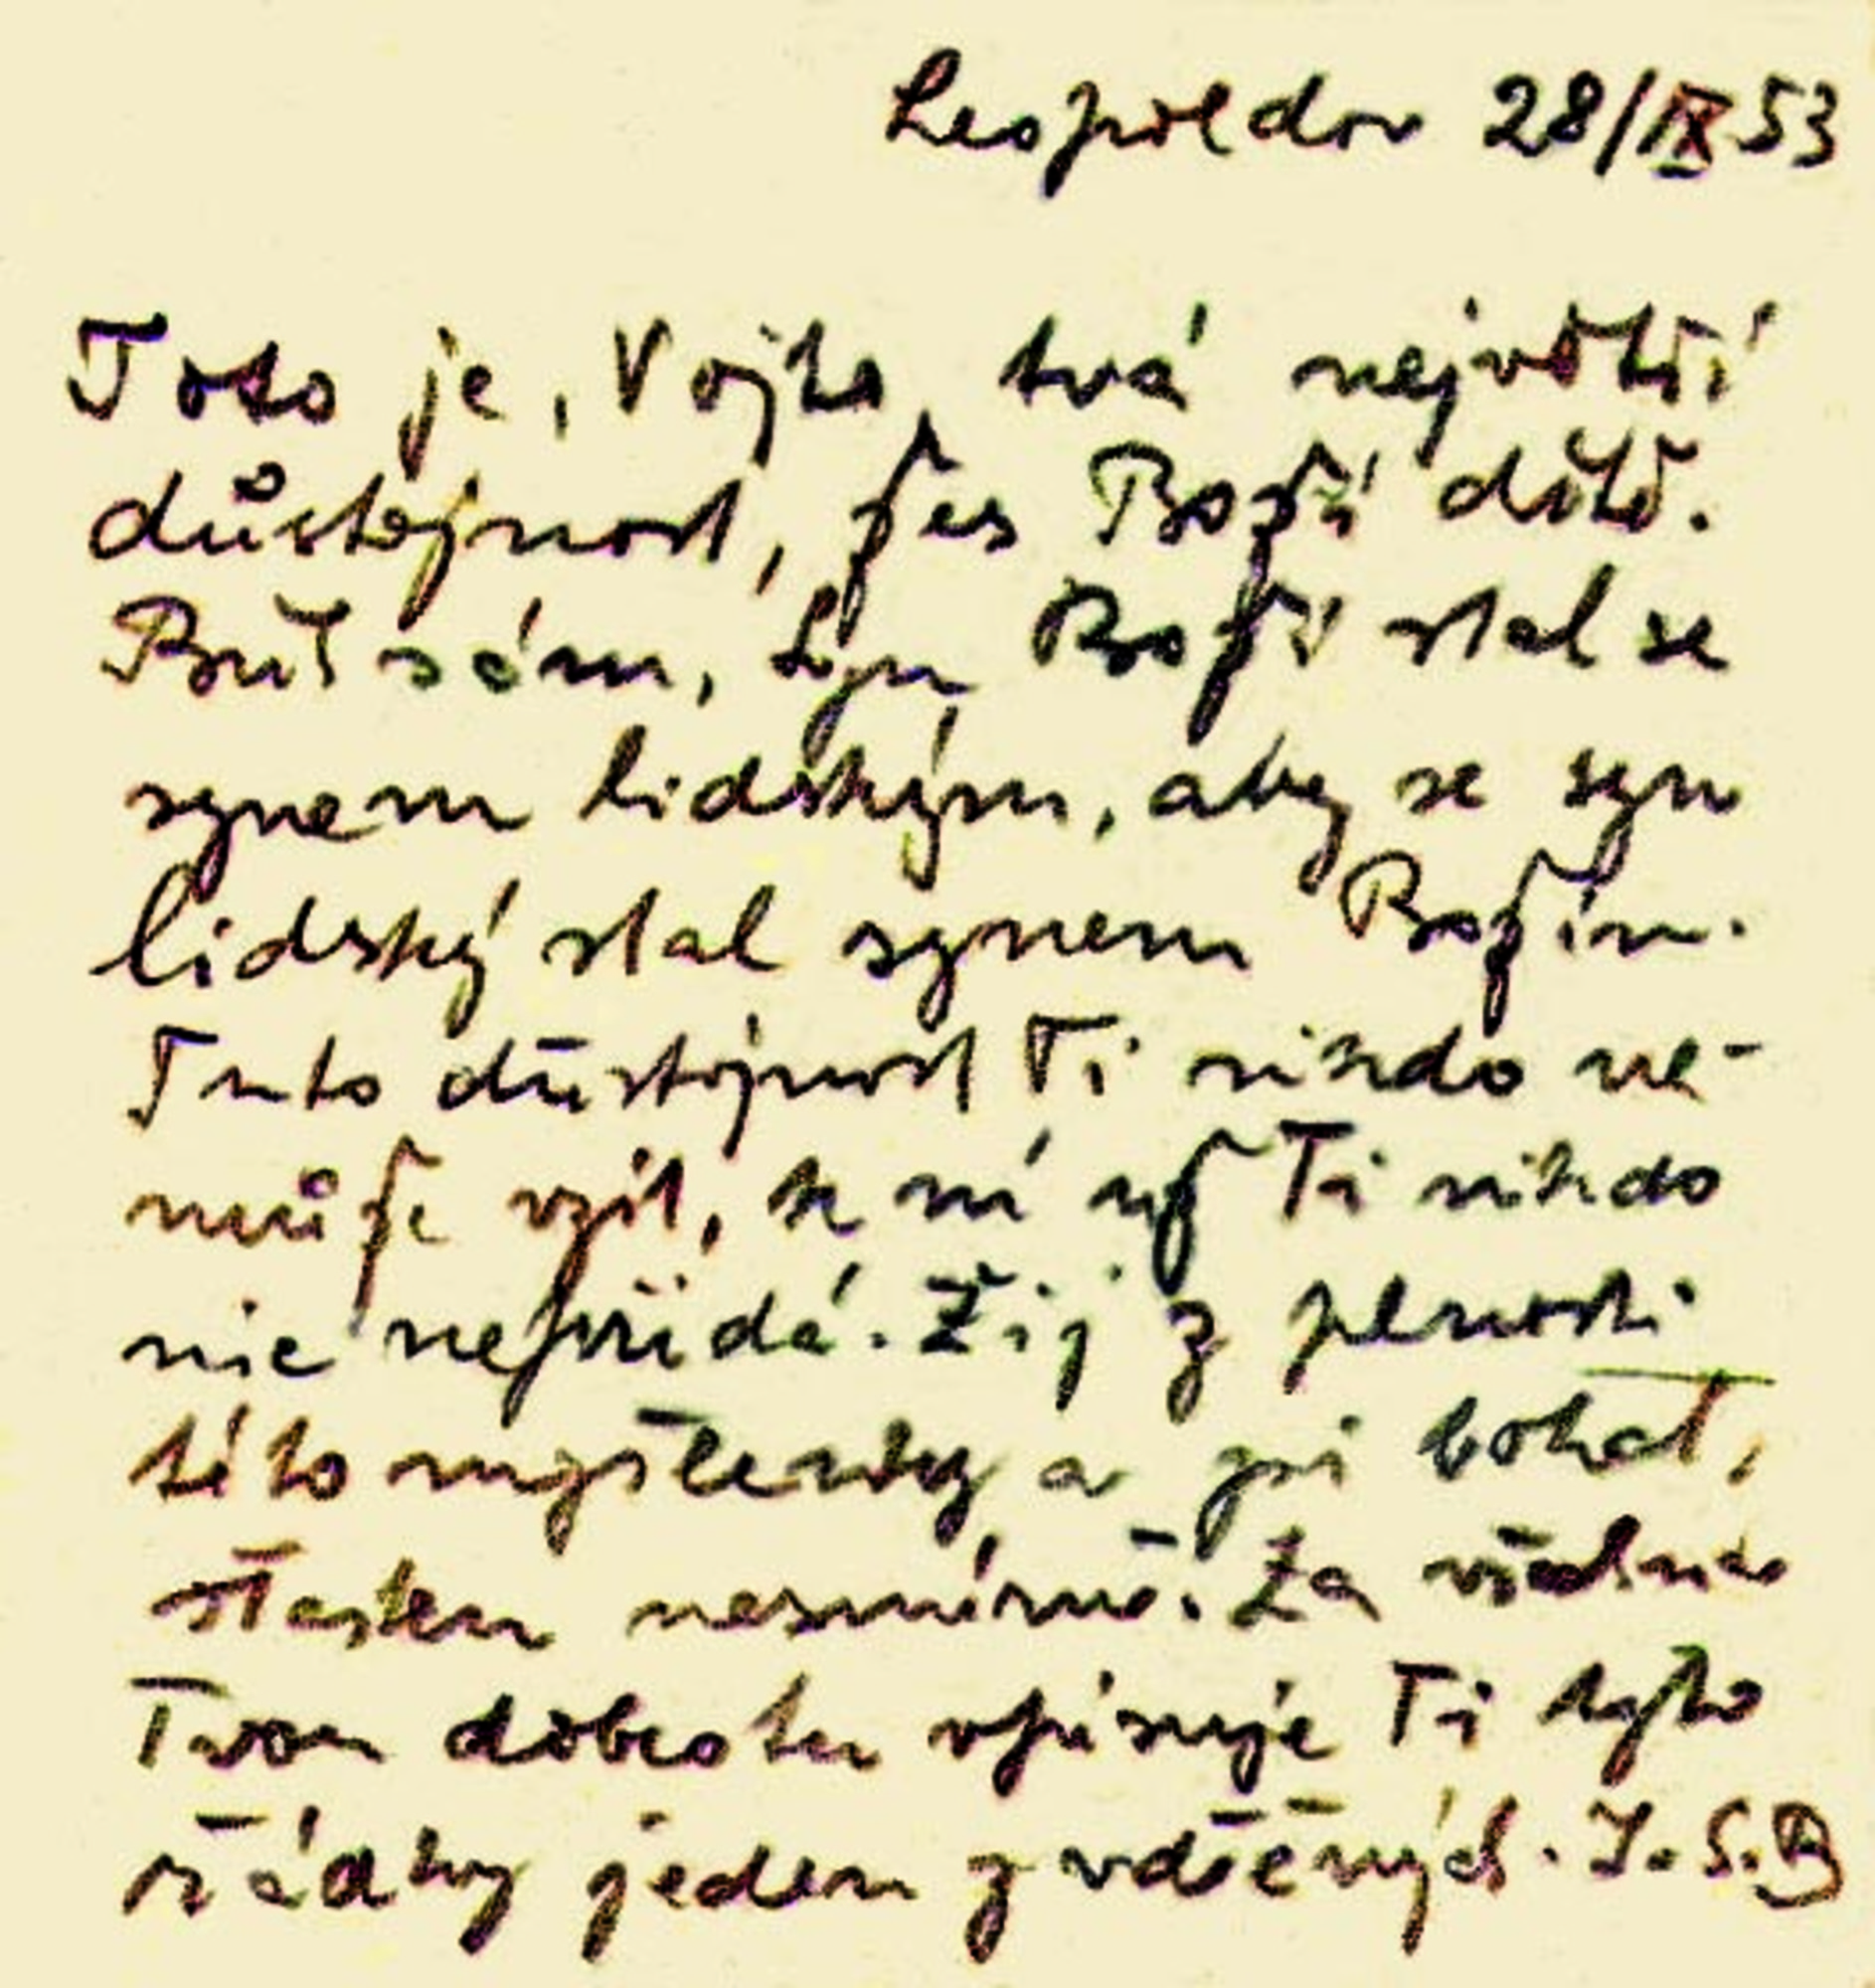 Leopoldov 28/IX 53
Toto je, Vojto, tvá největší
důstojnost, žes Boží dítě.
Bůh sám, Syn Boží stal se
synem lidským, aby se syn
lidský stal synem Božím.
Tuto důstojnost Ti nikdo ne-
může vzít, k ní už Ti nikdo
nic nepřidá. Žij z plnosti
této myšlenky a jsi bohat,
šťasten nesmírně. Za všechnu
Tvou dobrotu vpisuje Ti tyto
řádky jeden z vděčných. J. S. B